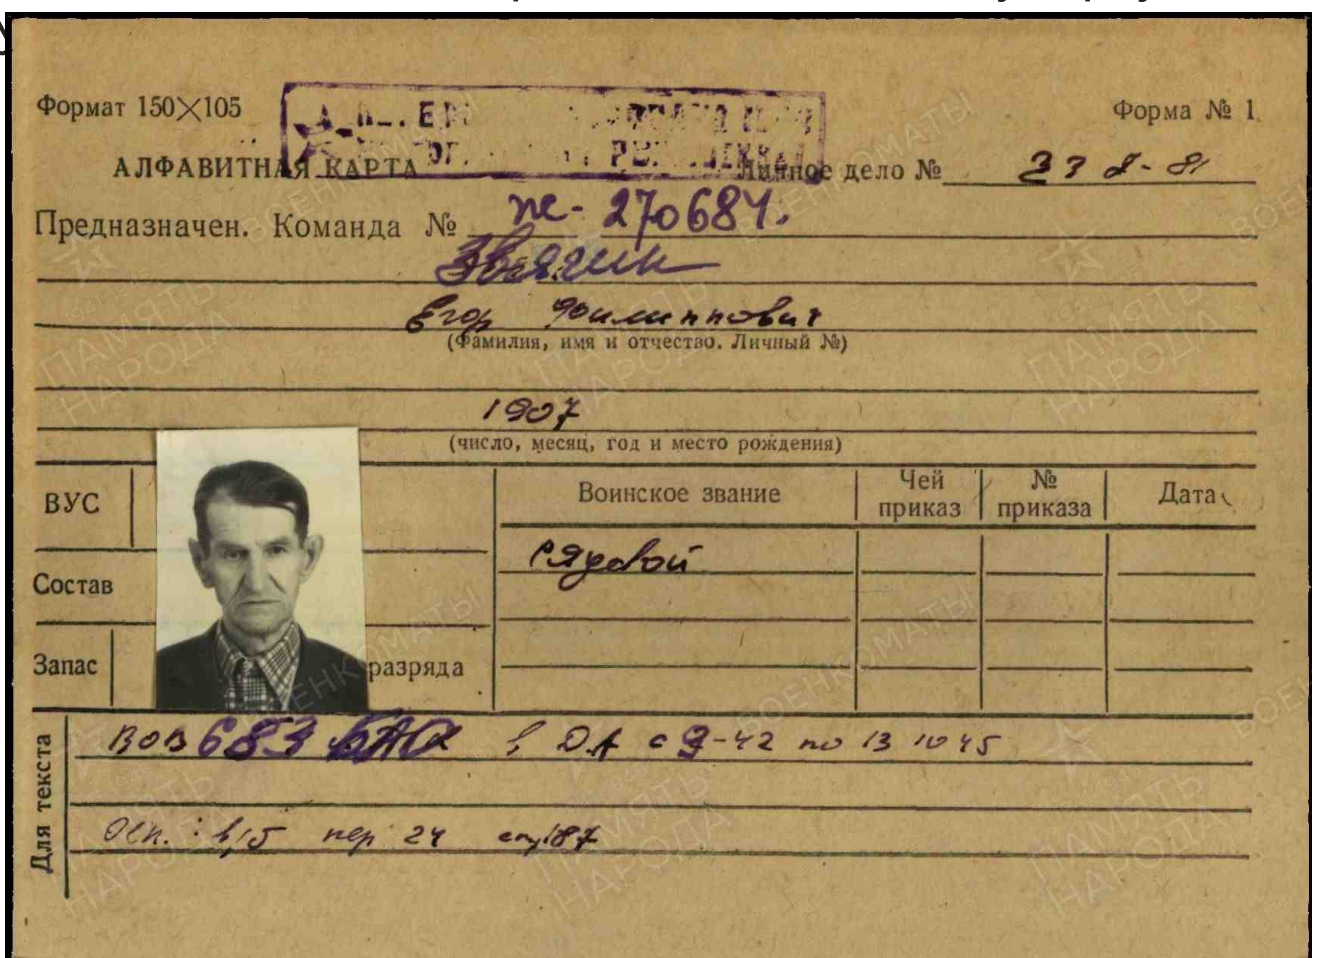 Формат 150×105
Форма № 1
АЛФАВИТНАЯ КАРТА
Личное дело №
Предназначен. Команда № 270684.
Звягин
Егор Филиппович
(Фамилия, имя и отчество. Личный №)
1907
(число, месяц, год и место рождения)
ВУС
Воинское звание
Чей приказ
№ приказа
Дата
рядовой
Состав
Запас
разряда
Для текста
ВОВ 683 БАО в ДА с 9-42 по 13 10 45
Осн.: пер 24
ПАМЯТЬ НАРОДА
ВОЕНКОМАТЫ